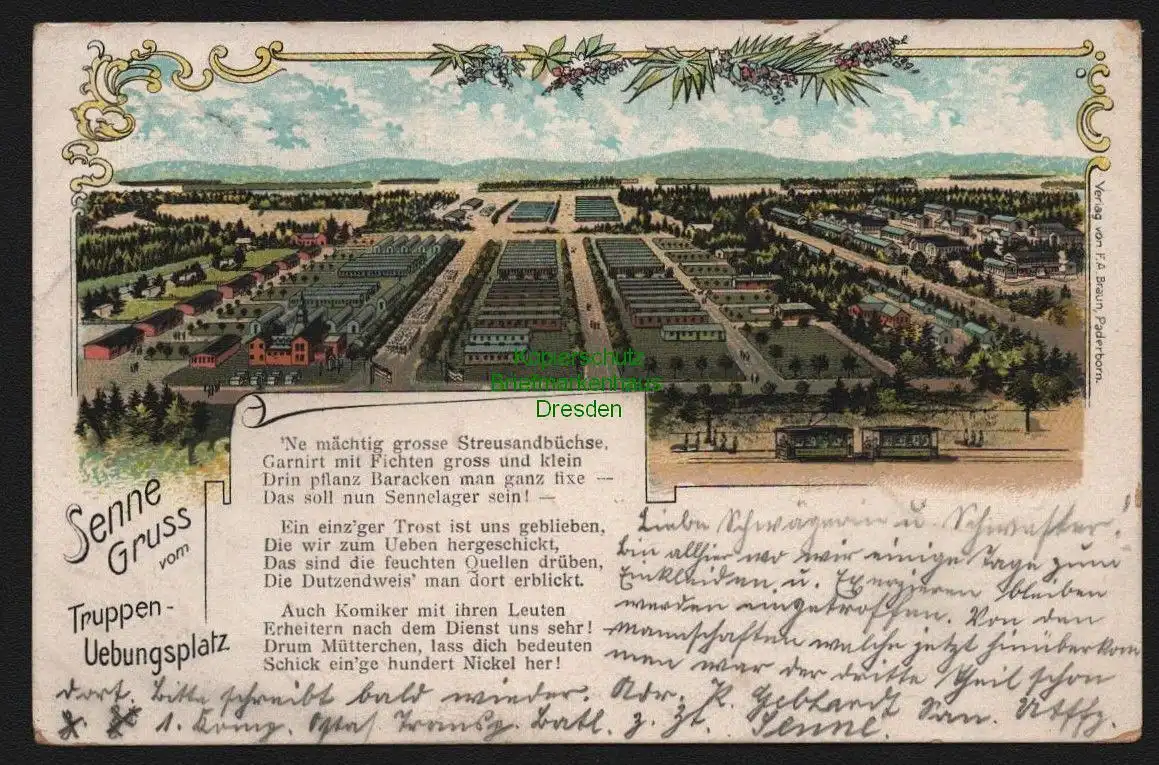 Verlag von F. A. Braun, Paderborn.
Kopierschutz
Briefmarkenhaus
Dresden
Senne
Gruss
vom
Truppen-
Uebungsplatz
'Ne mächtig grosse Streusandbüchse,
Garnirt mit Fichten gross und klein
Drin pflanz Baracken man ganz fixe —
Das soll nun Sennelager sein! —
Ein einz'ger Trost ist uns geblieben,
Die wir zum Ueben hergeschickt,
Das sind die feuchten Quellen drüben,
Die Dutzendweis' man dort erblickt.
Auch Komiker mit ihren Leuten
Erheitern nach dem Dienst uns sehr!
Drum Mütterchen, lass dich bedeuten
Schick ein'ge hundert Nickel her!
Liebe Schwägerin u. Schwester!
Bin allhier wo wir einige Tage zum
Einkleiden u. Exerzieren bleiben
werden eingetroffen. Von den
Mannschaften welche jetzt hinüberkom
men war der dritte Theil schon
dort. Bitte schreibt bald wieder. Adr. K. Gebhardt San. Utffz.
1. Komp. Ostas. Transp. Batl. z. Zt. Senne.